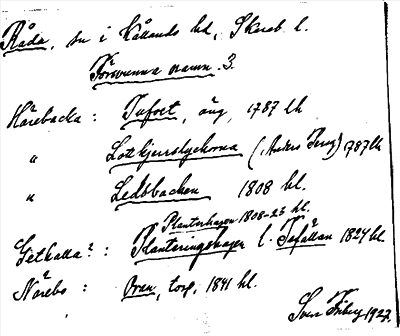 Råda, sn i Kållands hd, Skarab. l.
Försvunna namn. 3.
Hårebacka : Tufvet, äng, 1787 lh
" Lottkjerrslyckorna (Anders Pers) 1787 lh
" Ledsbacken 1808 hl.
Planterhagen 1808-23 hl.
Getkalla? : Planteringshagen l. Tafällan 1824 hl.
Nårebo : Oran, torp, 1841 hl.
Sven Friberg 1927.